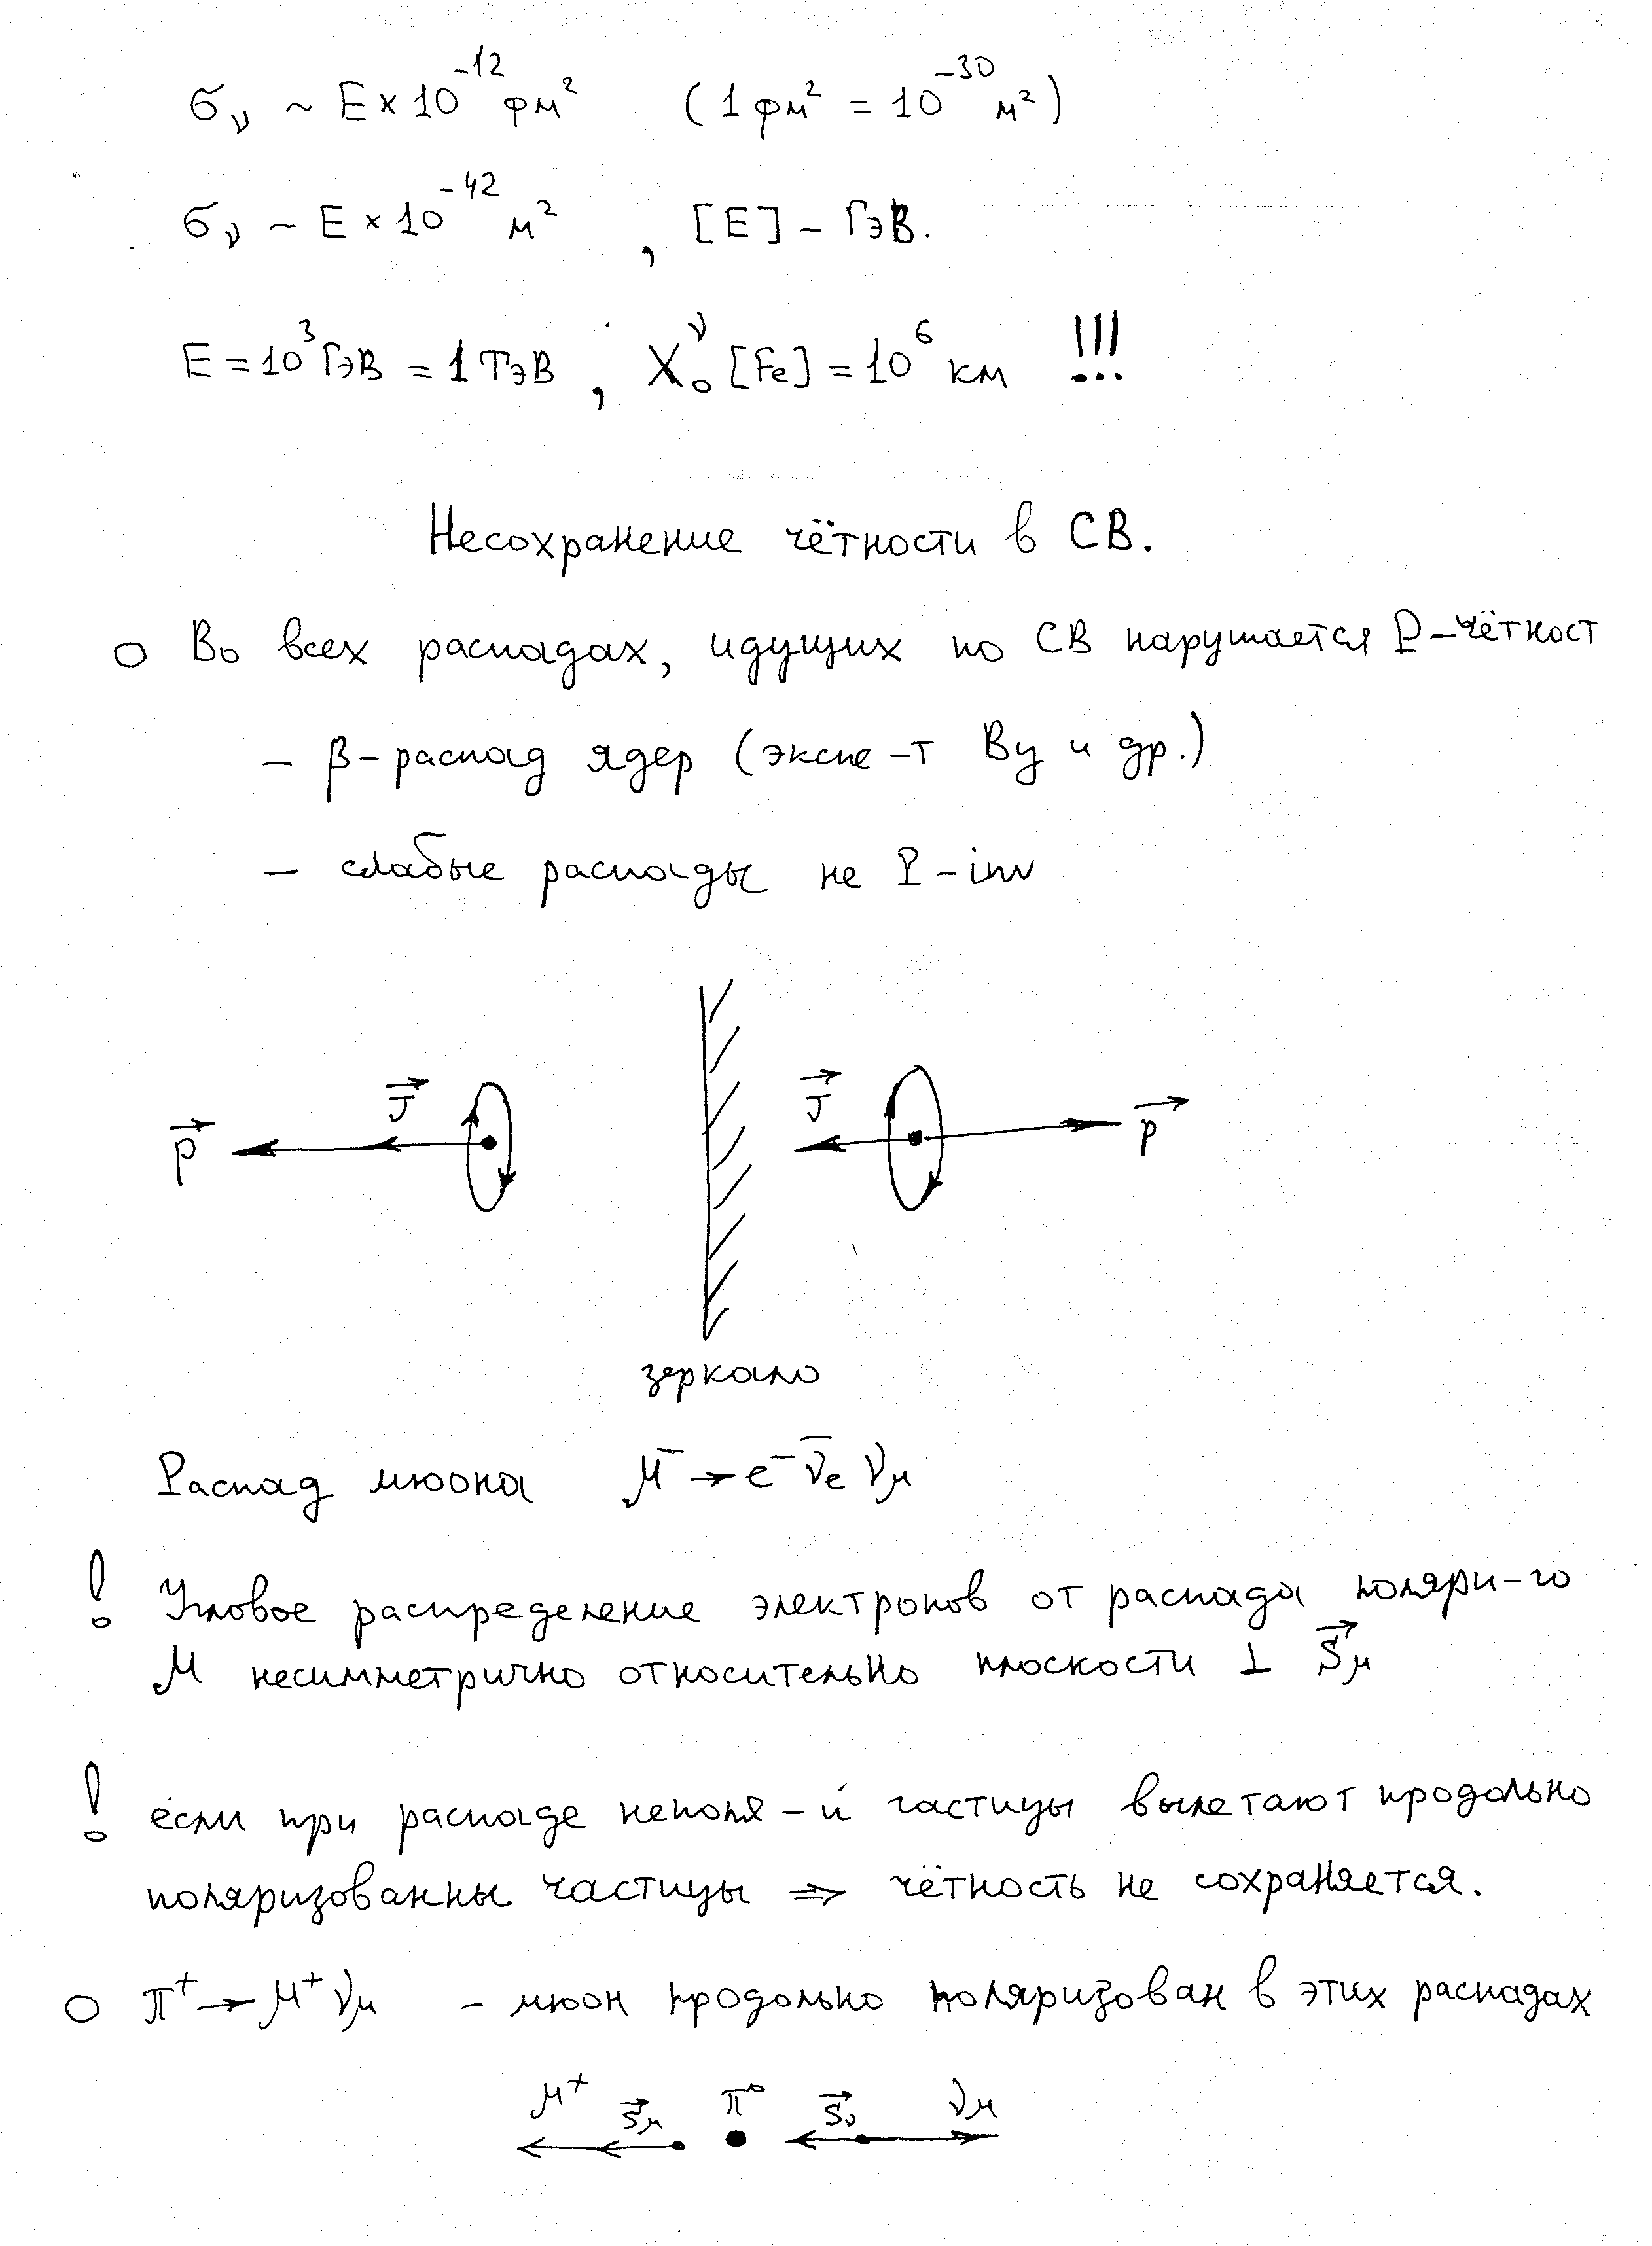 σ_ν ~ E × 10^-12 фм² (1 фм² = 10^-30 м²)
σ_ν ~ E × 10^-42 м² , [E] – ГэВ.
E = 10³ ГэВ = 1 ТэВ , X₀^ν [Fe] = 10⁶ км !!!
Несохранение чётности в СВ.
○ Во всех распадах, идущих по СВ нарушается P-чётност
– β-распад ядер (экспе-т Ву и др.)
– слабые распады не P-inv
J⃗ J⃗
p⃗ p⃗
зеркало
Распад мюона μ⁻ → e⁻ ν̄_e ν_μ
! Угловое распределение электронов от распада поляри-го
μ несимметрично относительно плоскости ⊥ S⃗_μ
! если при распаде неполя-й частицы вылетают продольно
поляризованны частицы ⇒ чётность не сохраняется.
○ π⁺ → μ⁺ ν_μ – мюон продольно поляризован в этих распадах
μ⁺ S⃗_μ π⁰ S⃗_ν ν_μ